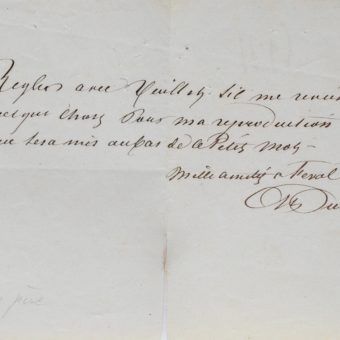 Reglez avec Meillet s'il me revient
quelque chose pour ma reproduction
sera mis au bas de ce Petit mot
Mille amitiés a Feval